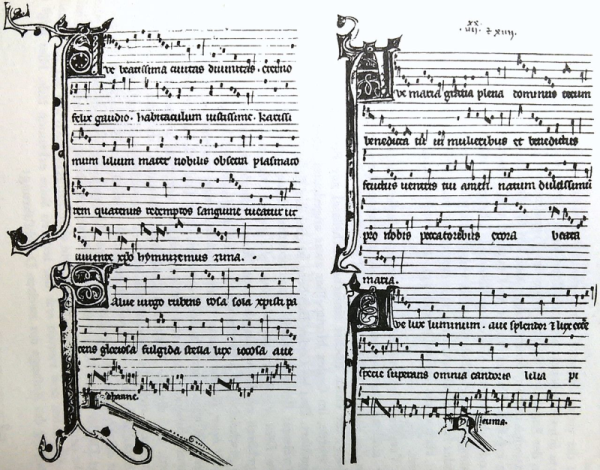 ve beatissima civitas divinitatis. eterno
felix gaudio. habitaculum iustissime. karissi
mum lilium mater nobilis obsecra plasmato
rem quatenus redemptos sanguine tueatur ut
vivente xpo hymnizemus
Salve virgo rubens rosa sola xpisti pa
rens gloriosa fulgida stella lux iocosa ave
Johanne
Ave maria gratia plena dominus tecum
benedicta tu in mulieribus et benedictus
fructus ventris tui amen. natum dulcissimu
pro nobis peccatoribus exora beata
maria.
Ave lux luminum. ave splendor z lux
specie superans omnia candoris lilia